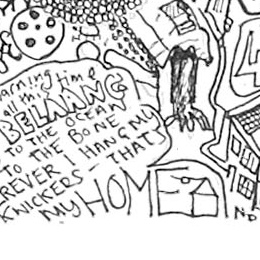 arning time
all my
BELANNG
TO THE OCEAN
TO THE BONE
REVER I HANG MY
KNICKERS - THAT'
MY HOM